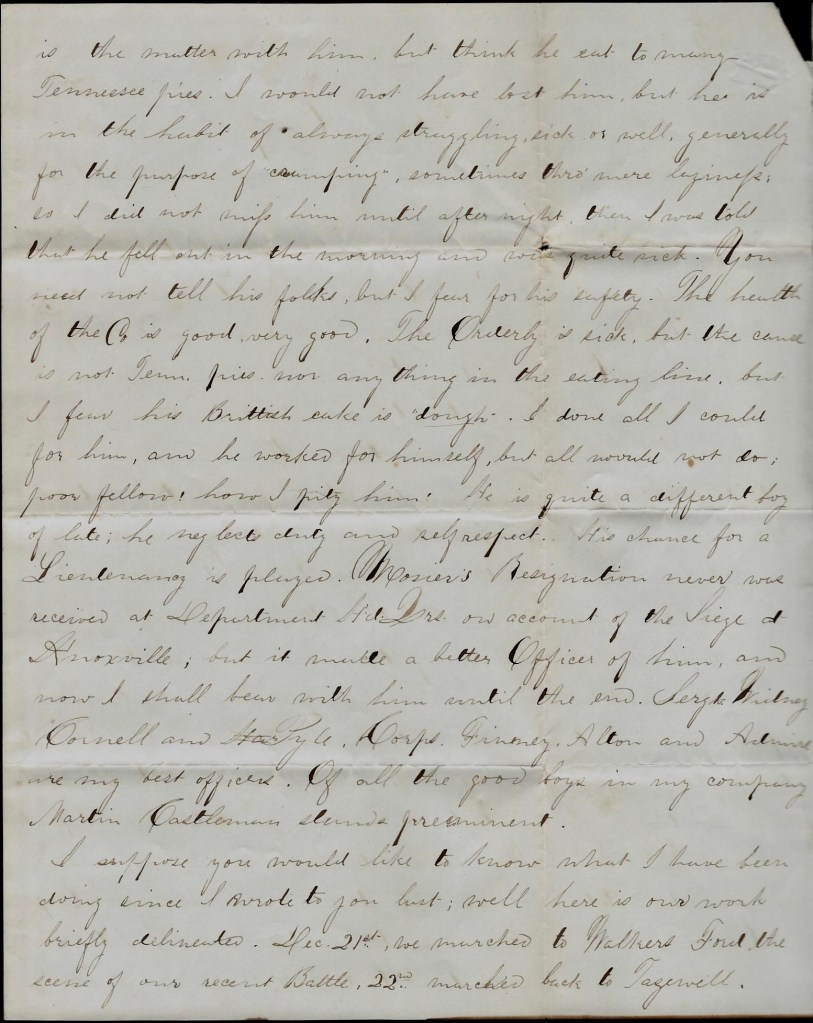 is the matter with him. but think he eat to many
Tennessee pies. I would not have lost him, but he is
in the habit of always straggling, sick or well, generally
for the purpose of "cramping", sometimes thro' mere laziness;
so I did not miss him until after night, then I was told
that he fell out in the morning and was quite sick. You
need not tell his folks, but I fear for his safety. The health
of the Co is good, very good. The Orderly is sick, but the cause
is not Tenn. pies. nor anything in the eating line. but
I fear his Brittish cake is "dough". I done all I could
for him, and he worked for himself, but all would not do;
poor fellow! how I pity him! He is quite a different boy
of late; he neglects duty and self respect. His chance for a
Lieutenancy is played. Mosier's Resignation never was
received at Department Hd. Qrs. on account of the Siege at
Knoxville; but it made a better Officer of him, and
now I shall bear with him until the end. Sergts
Cornell and Lyle, Corps. Finney, Alton and
are my best officers. Of all the good boys in my company
Martin Castleman stands preeminent.
I suppose you would like to know what I have been
doing since I wrote to you last; well here is our work
briefly delineated. Dec. 21st, we marched to Walkers Ford the
scene of our recent Battle, 22nd marched back to Tazewell.